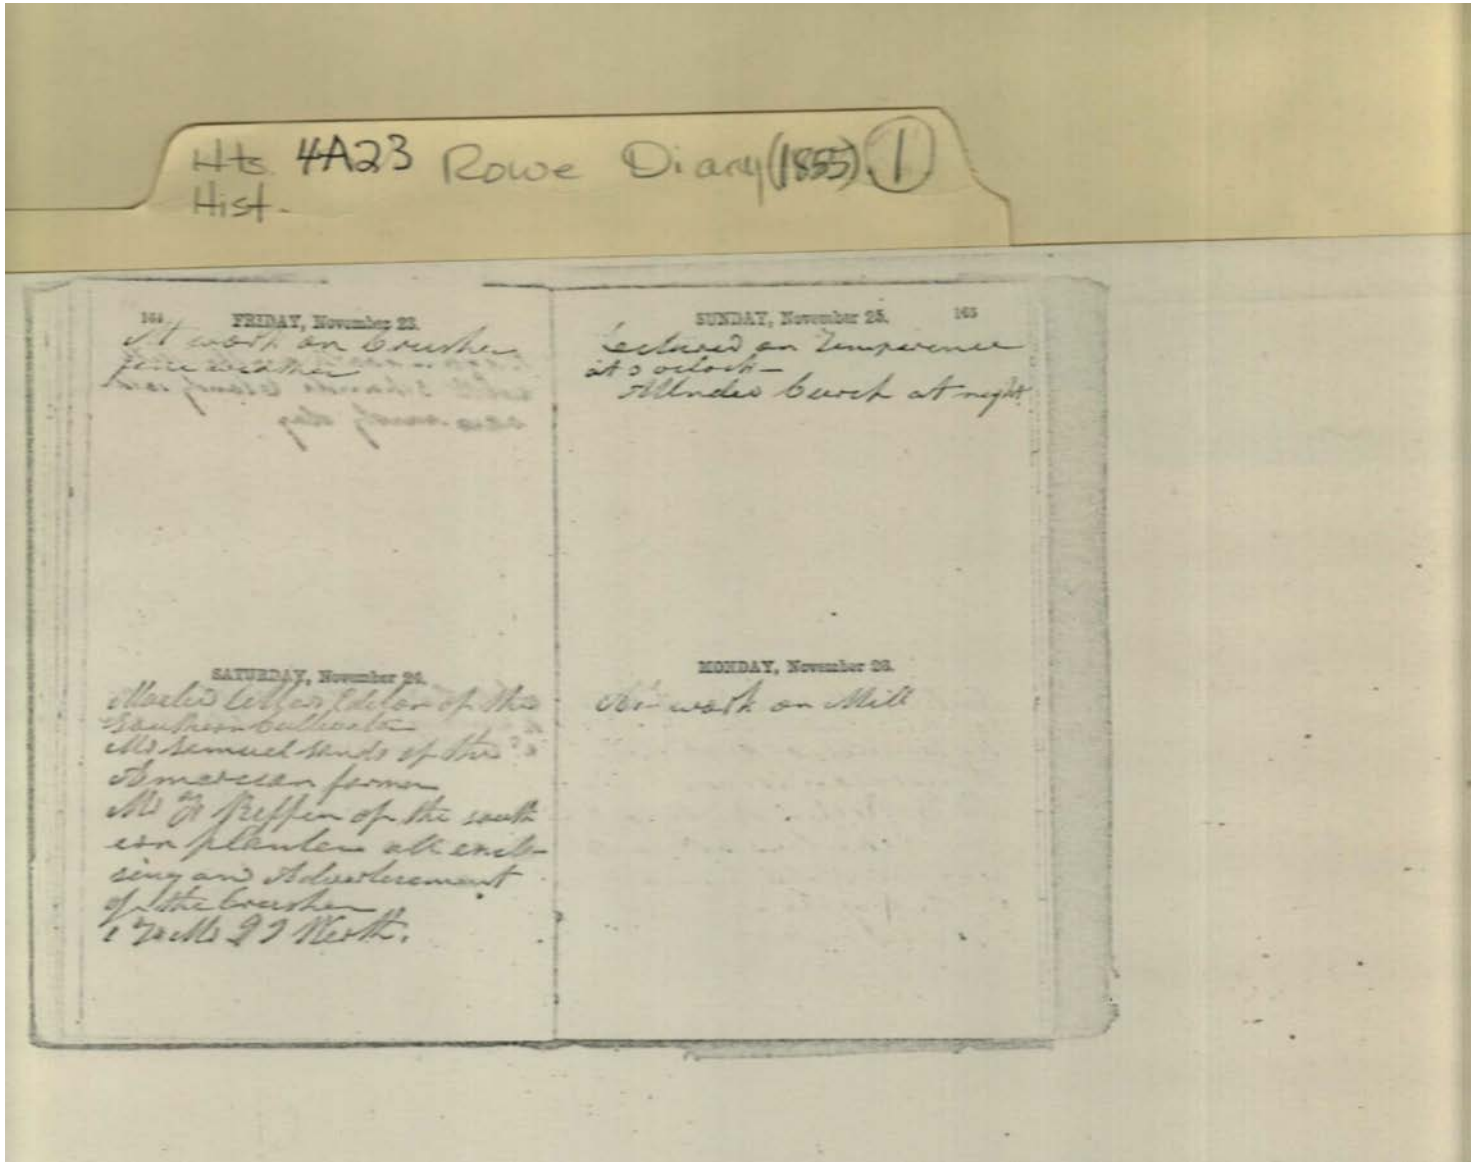 Hts. 4A23 Rowe Diary (1855) 1
Hist.
164 FRIDAY, November 23.
At work on Crusher
fine weather
SATURDAY, November 24.
Mailed letters Editor of the
Southern Cultivator
Mr Samuel Sands of the
American farmer
Mr of the south
ern planter all enclo-
sing and Advertisement
of the Crusher
Mr
SUNDAY, November 25. 165
Lectured on Temperence
at 3 oclock —
Attended Curch at night
MONDAY, November 26.
At work on Mill